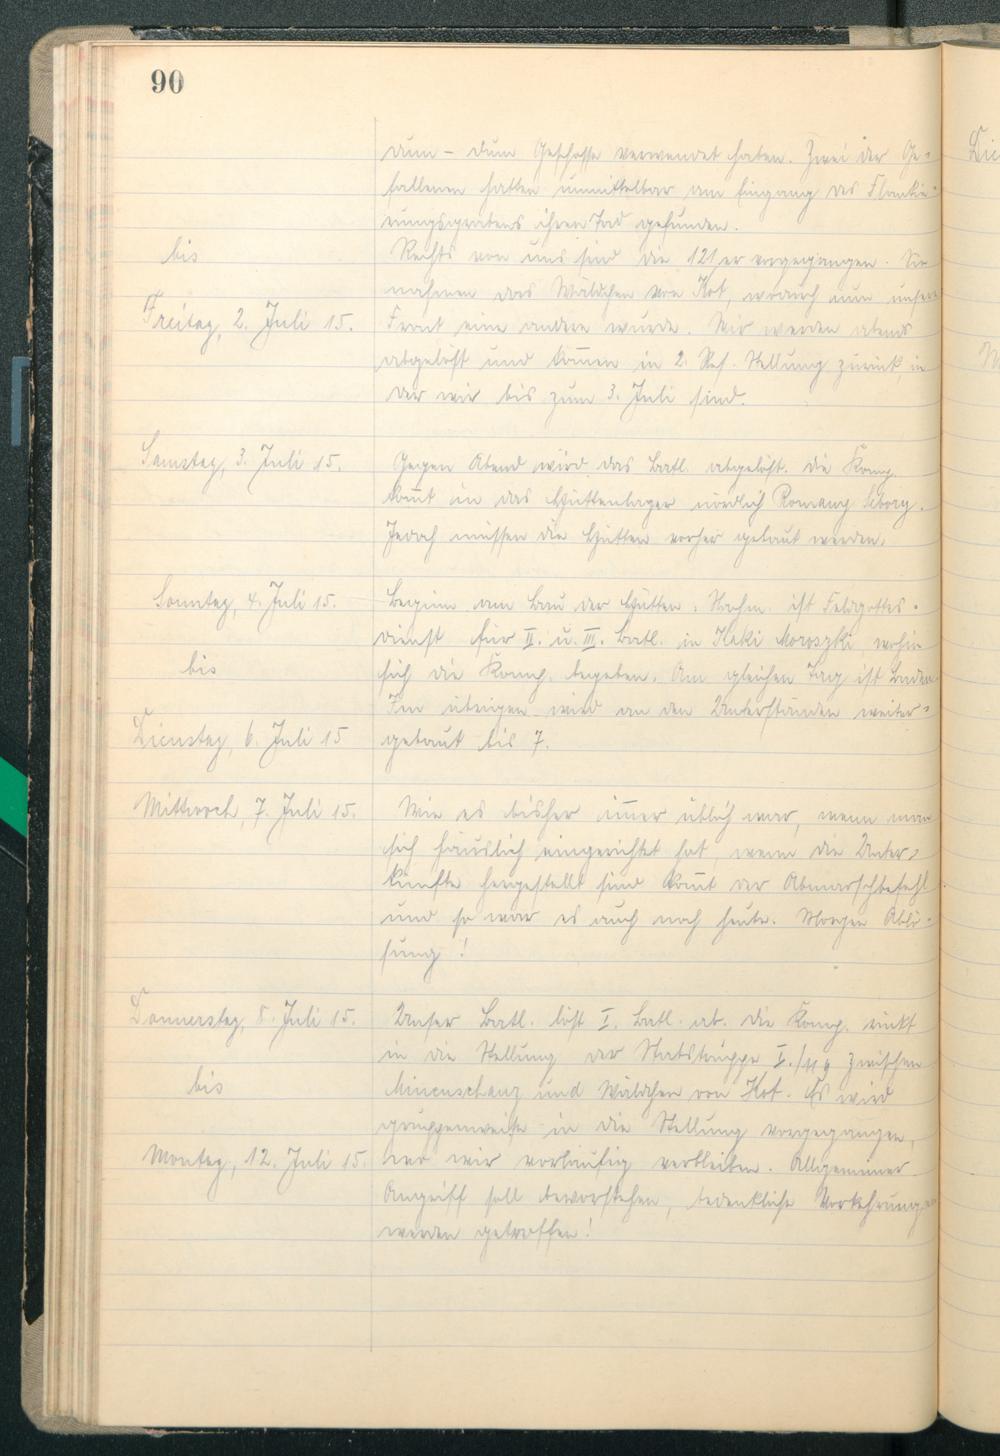 90
dum - dum Geschosse verwendet haben. Zwei der Ge-
fallenen hatten unmittelbar am Eingang des Flankie-
rungsgrabens ihren Tod gefunden.
bis
Rechts von uns sind die 121er vorgegangen. Sie
nahmen das Wäldchen von Kot, wodurch nun unsere
Freitag, 2. Juli 15.
Front eine andere wurde. Wir werden abends
abgelöst und kom̄en in 2. Res. Stellung zurück, in
der wir bis zum 3. Juli sind.
Samstag, 3. Juli 15.
Gegen Abend wird das Batl. abgelöst. Die Komp.
kom̄t in das Hüttenlager nördlich Romany Seborg.
Jedoch müssen die Hütten vorher gebaut werden.
Sonntag, 4. Juli 15.
Beginn am Bau der Hütten. Nachm. ist Feldgottes-
dienst für II. u. III. Batl. in Kaki Moroszki, wohin
bis
sich die Komp. begeben. Am gleichen Tag ist Baden.
Im übrigen wird an den Unterständen weiter-
Dienstag, 6. Juli 15
gebaut bis 7.
Mittwoch, 7. Juli 15.
Wie es bisher im̄er üblich war, wenn man
sich häuslich eingerichtet hat, wenn die Unter-
künfte hergestellt sind kom̄t der Abmarschbefehl
und so war es auch noch heute. Morgen Ablö-
sung!
Donnerstag, 8. Juli 15.
Unser Batl. löst I. Batl. ab. Die Komp. rückt
in die Stellung der Stabstruppe I./119 zwischen
bis
Minenschanz und Wäldchen von Kot. Es wird
gruppenweise in die Stellung vorgegangen,
Montag, 12. Juli 15.
wo wir vorläufig verbleiben. Allgemeiner
Angriff soll bevorstehen, bedenkliche Vorkehrungen
werden getroffen!